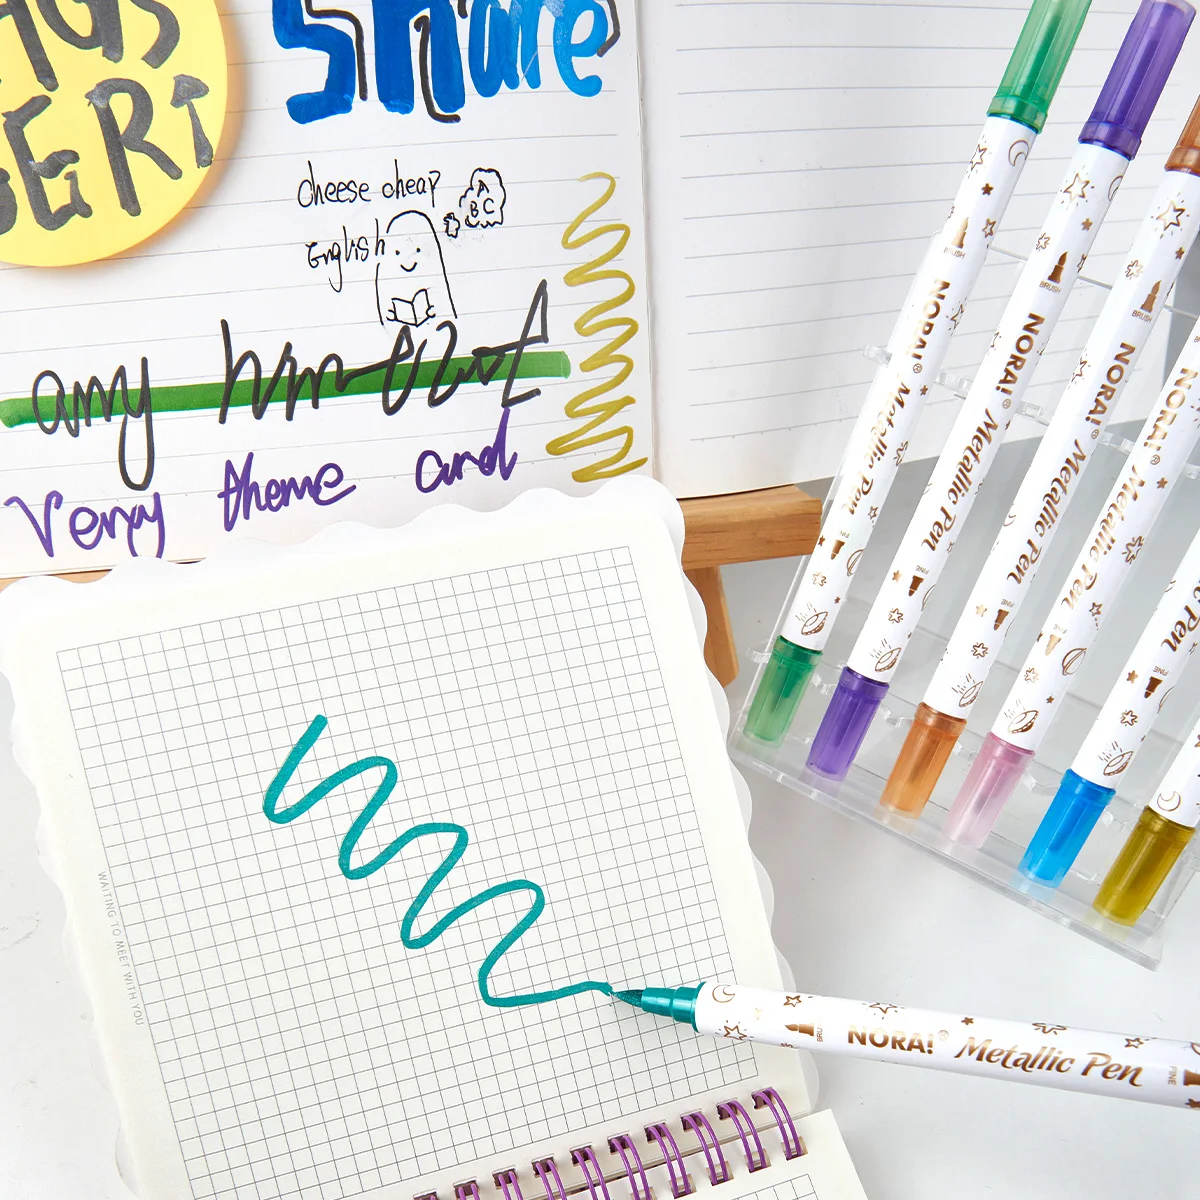 Share
cheese cheap
English
A
B C
any
Very theme and
WAITING TO MEET WITH YOU
BRUSH
NORA! Metallic Pen
FINE
BRUSH
NORA! Metallic Pen
FINE
BRUSH
NORA!® Metallic Pen
FINE
NORA!® Metallic Pen
FINE
Pen
FINE
NORA!® Metallic Pen
FINE